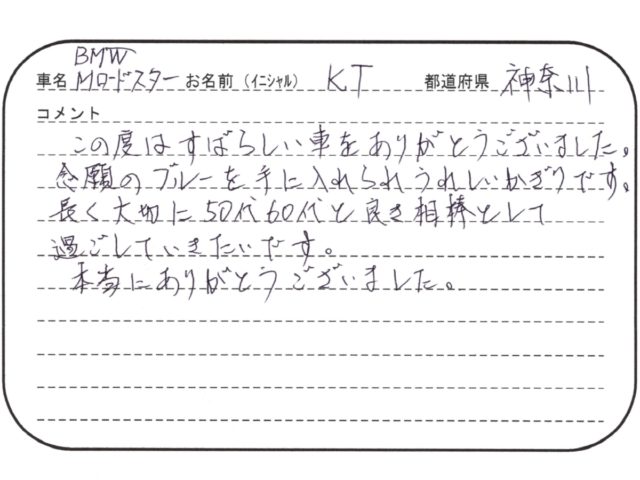 BMW
車名 Mロードスター お名前(イニシャル) KT 都道府県 神奈川
コメント
この度はすばらしい車をありがとうございました。
念願のブルーを手に入れられうれしいかぎりです。
長く大切に50代60代と良き相棒として
過ごしていきたいです。
本当にありがとうございました。